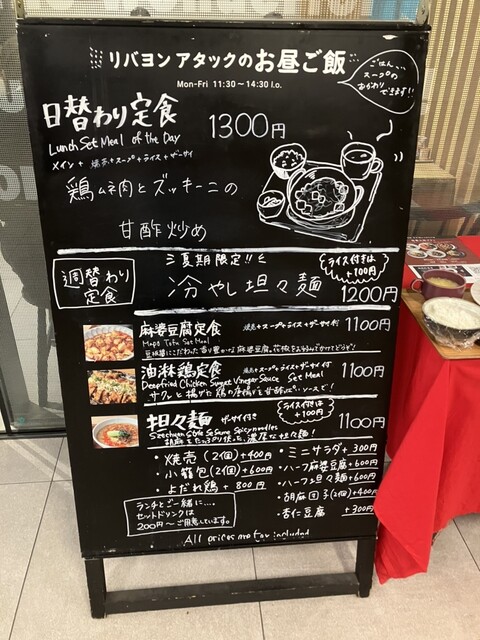 リバヨン アタックのお昼ご飯
Mon-Fri 11:30〜14:30 l.o.
ごはん、スープの
おかわり
できます!!
日替わり定食 1300円
Lunch Set Meal of the Day
メイン + 焼売+スープ+ライス+ザーサイ
鶏ムネ肉とズッキーニの
甘酢炒め
週替わり
定食
夏期限定!!
冷やし坦々麺 1200円
ライス付きは
+100円
麻婆豆腐定食 焼売+スープ+ライス+ザーサイ付 1100円
Mapo Tofu Set Meal
豆板醤にこだわった香り豊かな麻婆豆腐。花椒をお好みでかけてどうぞ!
油淋鶏定食 焼売+スープ+ライス+ザーサイ付 1100円
Deepfried Chicken Sweet Vinegar Sauce Set Meal
サクッと揚げた鶏の唐揚げを甘酢ソースで!
担々麺 ザーサイ付き 1100円
ライス付きは
+100円
Szechuan Style Sesame Spicy noodles
胡麻をたっぷり使った、濃厚な担々麺!
・焼売(2個)+400円
・小籠包(2個)+600円
・よだれ鶏+800円
・ミニサラダ+300円
・ハーフ麻婆豆腐+600円
・ハーフ担々麺+600円
・胡麻団子(2個)+400円
・杏仁豆腐 +300円
ランチとご一緒に...
セットドリンクは
200円〜ご用意しています。
All prices are tax included